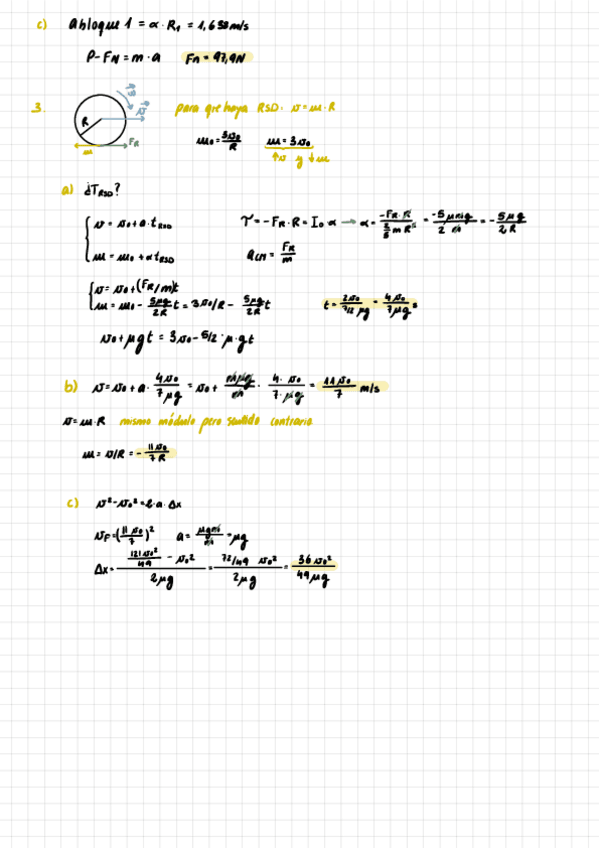 c) a bloque 1 = α · R₁ = 1,633 m/s
P - F_N = m · a   F_N = 97,9N
3. para que haya RSD. v = ω · R
R
F_R
ω
ω₀ = 3v₀/R   ω = 3v₀
↑v y ↓ω
a) ¿T_RSD?
v = v₀ + a · t_RSD   τ = -F_R · R = I₀ · α → α = -F_R · R / (2/5 m R²) = -5 μmg / 2m = -5μg / 2R
ω = ω₀ + α t_RSD   a_CM = F_R / m
v = v₀ + (F_R/m)t
ω = ω₀ - 5μg/2R t = 3v₀/R - 5μg/2R t   t = 2v₀ / 7/2 μg = 4v₀ / 7μg s
v₀ + μgt = 3v₀ - 5/2 · μ · gt
b) v = v₀ + a · 4v₀/7μg = v₀ + mμg/m · 4 · v₀ / 7 · μg = 11v₀/7 m/s
v = ω · R mismo módulo pero sentido contrario
ω = v/R = - 11v₀/7R
c) v² - v₀² = 2 · a · Δx
v_F = (11v₀/7)²   a = μgm/m = μg
Δx = (121v₀²/49 - v₀²) / 2μg = (72/49 v₀²) / 2μg = 36v₀² / 49μg